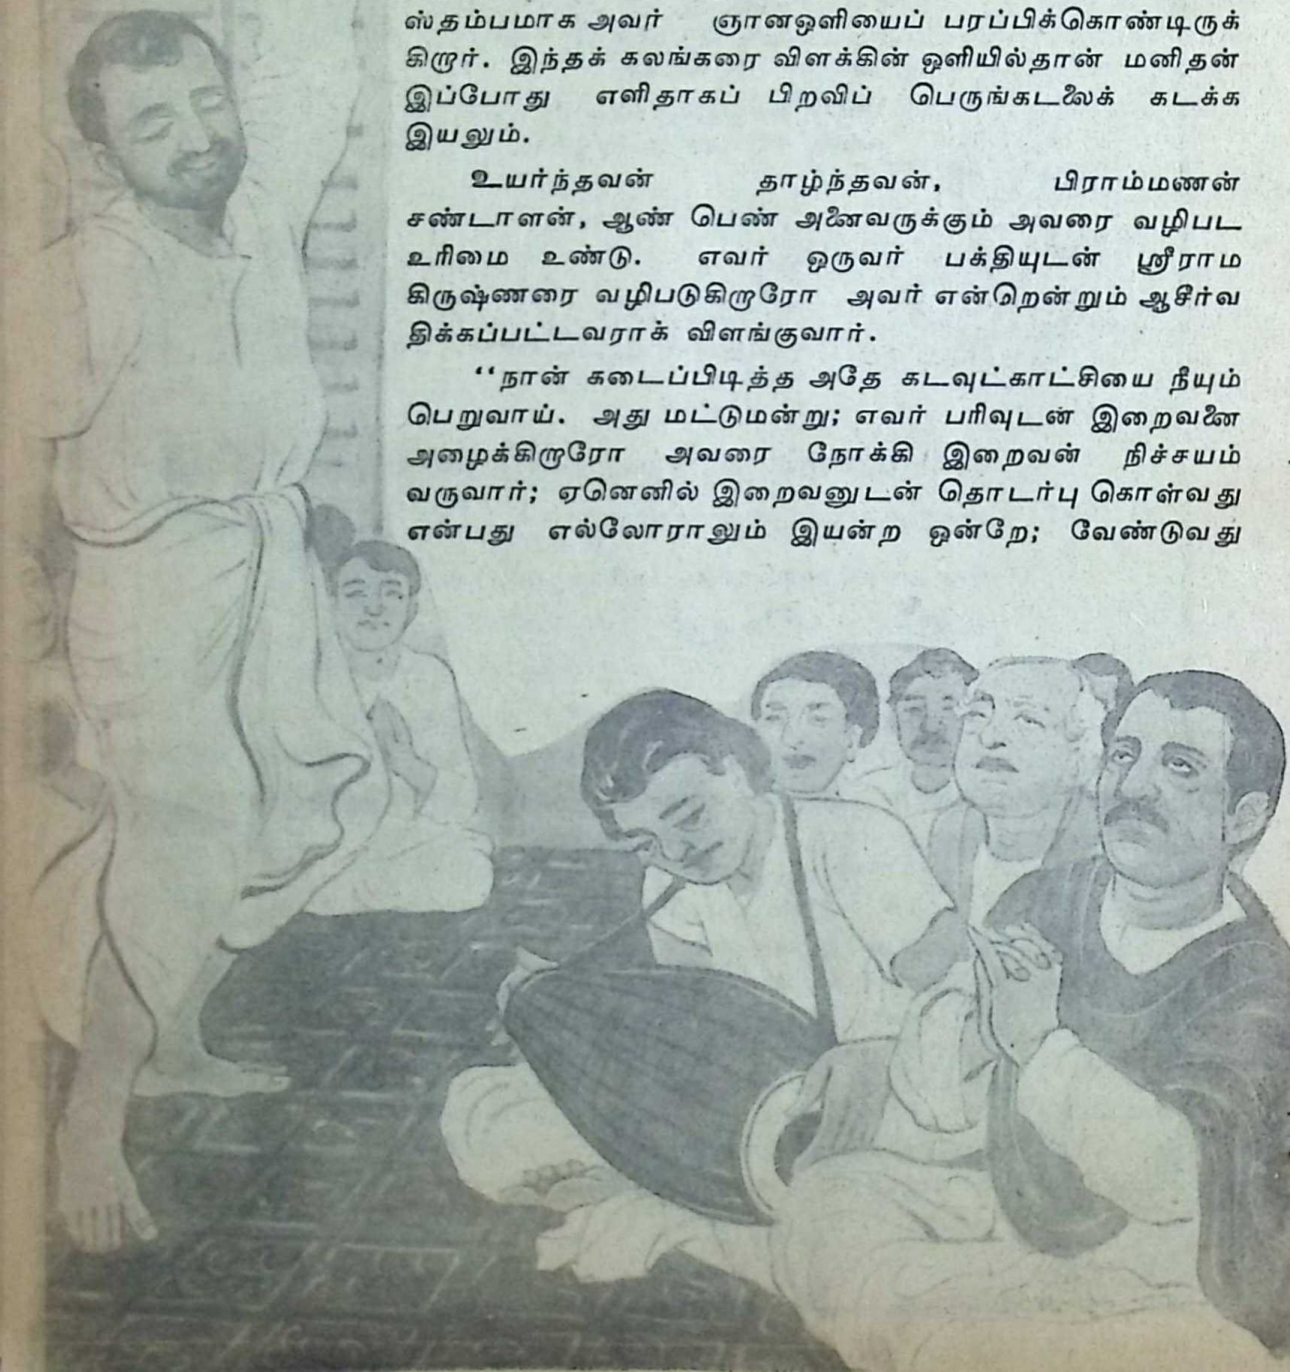 ஸ்தம்பமாக அவர் ஞானஒளியைப் பரப்பிக்கொண்டிருக்
கிறார். இந்தக் கலங்கரை விளக்கின் ஒளியில்தான் மனிதன்
இப்போது எளிதாகப் பிறவிப் பெருங்கடலைக் கடக்க
இயலும்.
உயர்ந்தவன் தாழ்ந்தவன், பிராம்மணன்
சண்டாளன், ஆண் பெண் அனைவருக்கும் அவரை வழிபட
உரிமை உண்டு. எவர் ஒருவர் பக்தியுடன் ஸ்ரீராம
கிருஷ்ணரை வழிபடுகிறாரோ அவர் என்றென்றும் ஆசீர்வ
திக்கப்பட்டவராக் விளங்குவார்.
‘‘நான் கடைப்பிடித்த அதே கடவுட்காட்சியை நீயும்
பெறுவாய். அது மட்டுமன்று; எவர் பரிவுடன் இறைவனை
அழைக்கிறாரோ அவரை நோக்கி இறைவன் நிச்சயம்
வருவார்; ஏனெனில் இறைவனுடன் தொடர்பு கொள்வது
என்பது எல்லோராலும் இயன்ற ஒன்றே; வேண்டுவது